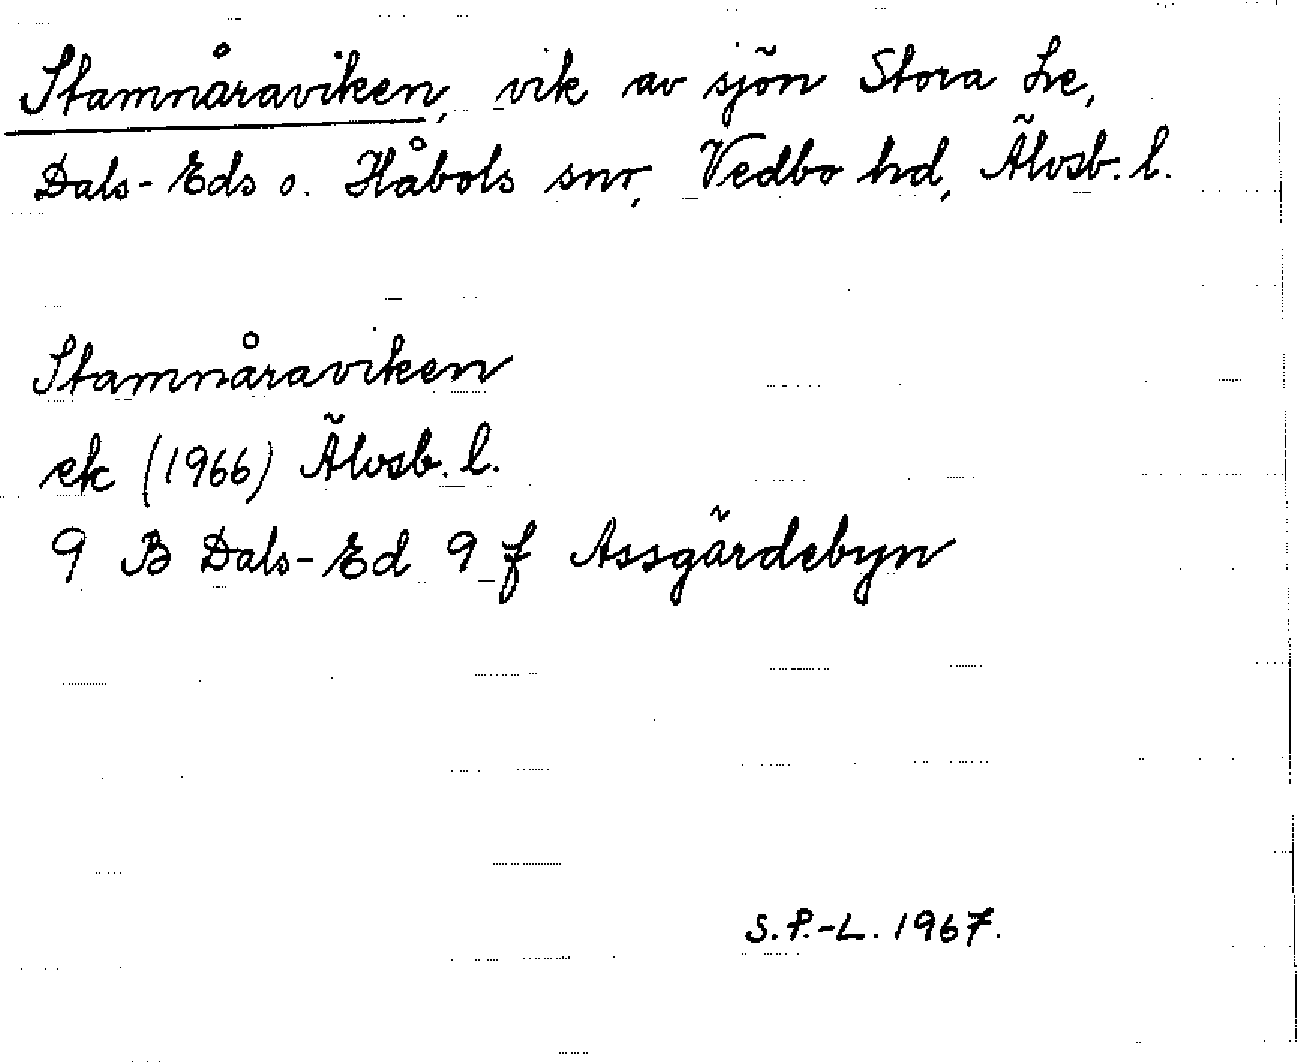 Stamnåraviken, vik av sjön Stora Le,
Dals-Eds o. Håbols snr, Vedbo hd, Älvsb. l.
Stamnåraviken
ek (1966) Älvsb. l.
9 B Dals-Ed 9 f Assgärdebyn
S.P.-L. 1967.